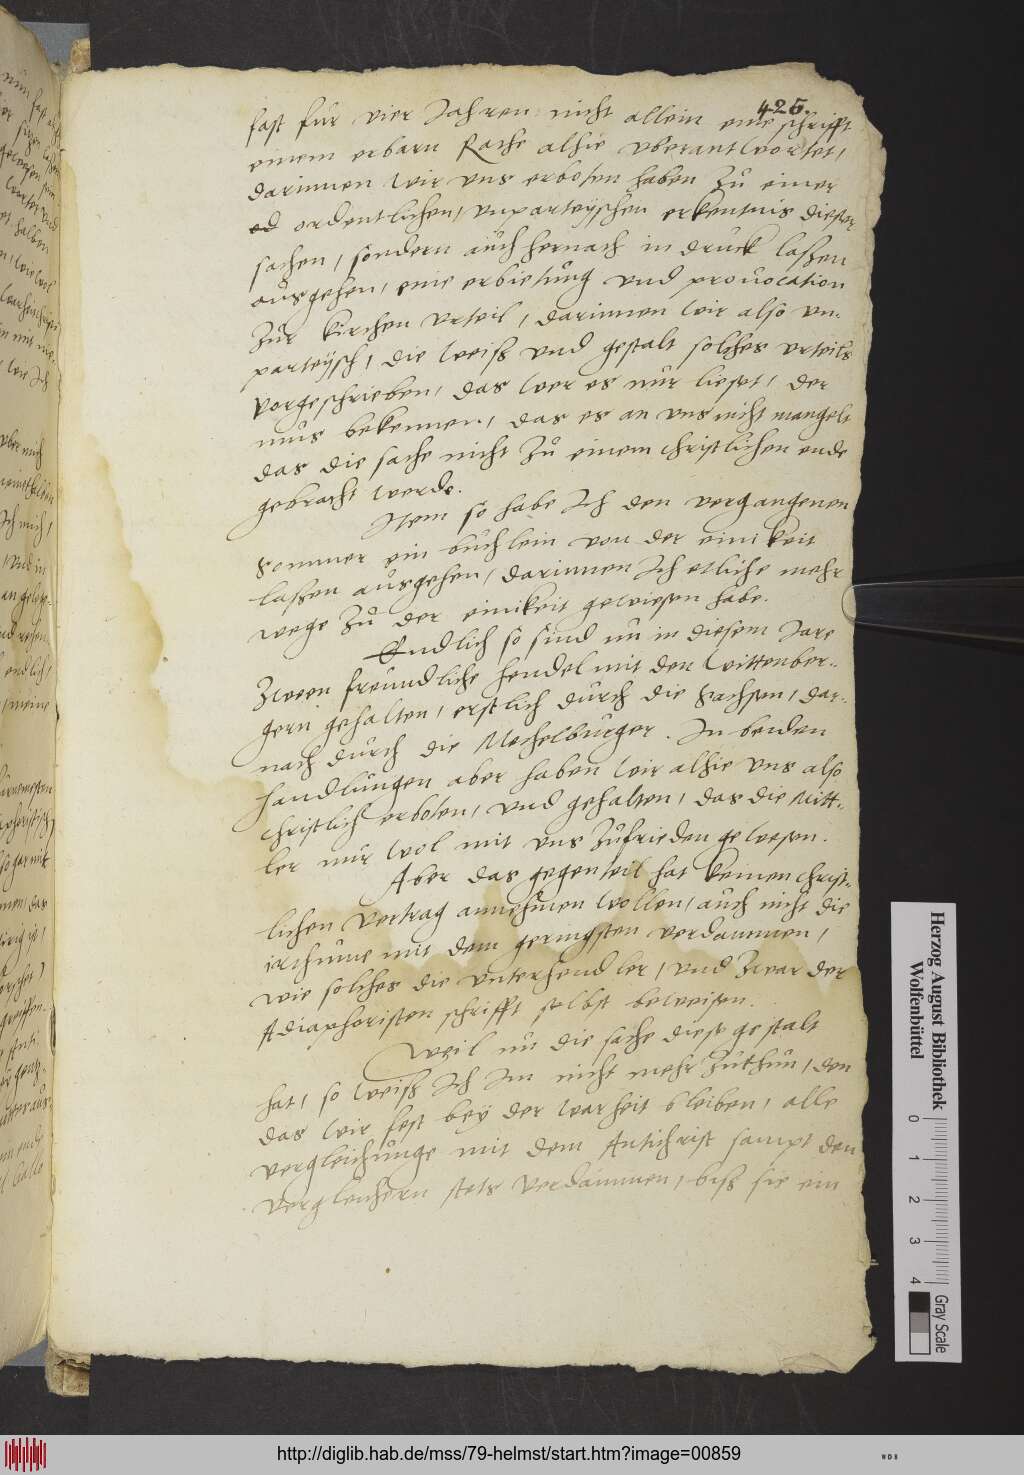 425.
fast fur vier Jahren nicht allein eine schrifft
einem erbarn Rathe alhie vberantwortet,
darinnen wir vns erboten haben zu einer
ordentlichen, vnparteyschen erkentnis dieser
sachen, sondern auch hernach in druck laßen
ausgehen, eine erbietung vnd prouocation
zur kirchen vrteil, darinnen wir also vn-
parteysch, die weiß vnd gestalt solches vrteils
vorgeschrieben, das wer es nur lieset, der
mus bekennen, das es an vns nicht mangelt
das die sache nicht zu einem christlichen ende
gebracht werde.
Item so habe Ich den vergangenen
Sommer ein buchlein von der einikeit
laßen ausgehen, darinnen Ich etliche mehr
wege zu der einikeit gewiesen habe.
Endlich so sind nu in diesem Jare
zween freundliche hendel mit den Wittenber-
gern gehalten, erstlich durch die Sachsen, dar-
nach durch die Mechelburger. In beiden
handlungen aber haben wir alhie vns also
christlich erboten, vnd gehalten, das die Mitt-
ler nur wol mit vns zufrieden gewesen.
Aber das gegenteil hat keinen christ-
lichen vertrag annehmen wollen, auch nicht die
irthume mit dem geringsten verdammen,
wie solches die vnterhendler, vnd zwar der
Adiaphoristen schrifft selbst beweisen.
Weil nu die sache diese gestalt
hat, so weiß Ich im nicht mehr zuthun, den
das wir fest bey der warheit bleiben, alle
vergleichunge mit dem Antichrist sampt den
vergleichern stets verdammen, biß sie ein
Herzog August Bibliothek
Wolfenbüttel
0 1 2 3 4
Gray Scale
http://diglib.hab.de/mss/79-helmst/start.htm?image=00859